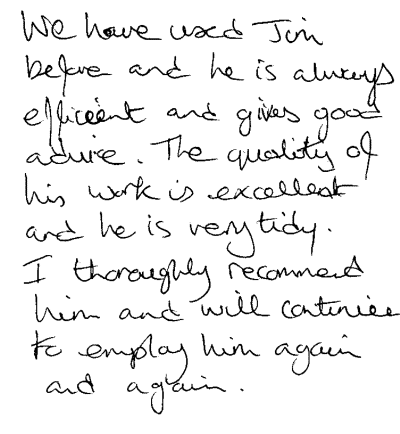 We have used Jim
before and he is always
efficient and gives good
advice. The quality of
his work is excellent
and he is very tidy.
I thoroughly recommend
him and will continue
to employ him again
and again.